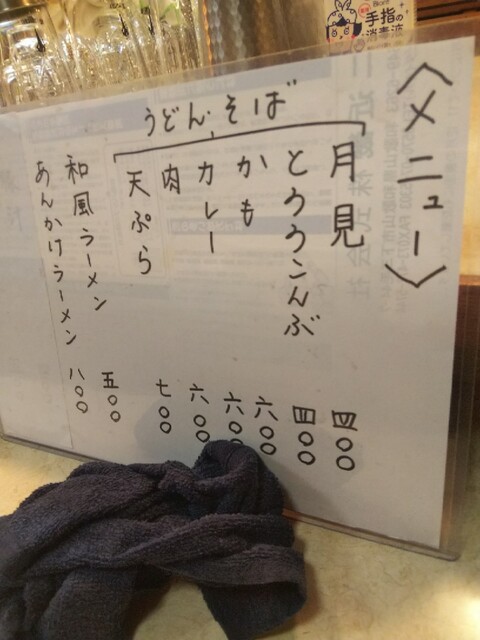 〈メニュー〉
うどん・そば
月見 四〇〇
とろろこんぶ 四〇〇
かも 六〇〇
カレー 六〇〇
肉 六〇〇
天ぷら 七〇〇
和風ラーメン 五〇〇
あんかけラーメン 八〇〇
手指の
消毒液